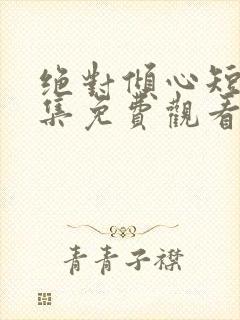 絕對傾心短
集免費觀看
青青子襟